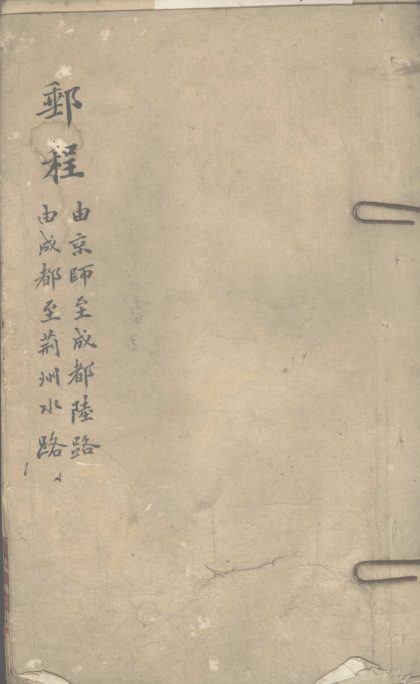 郵程
由京師至成都陸路
由成都至荊州水路